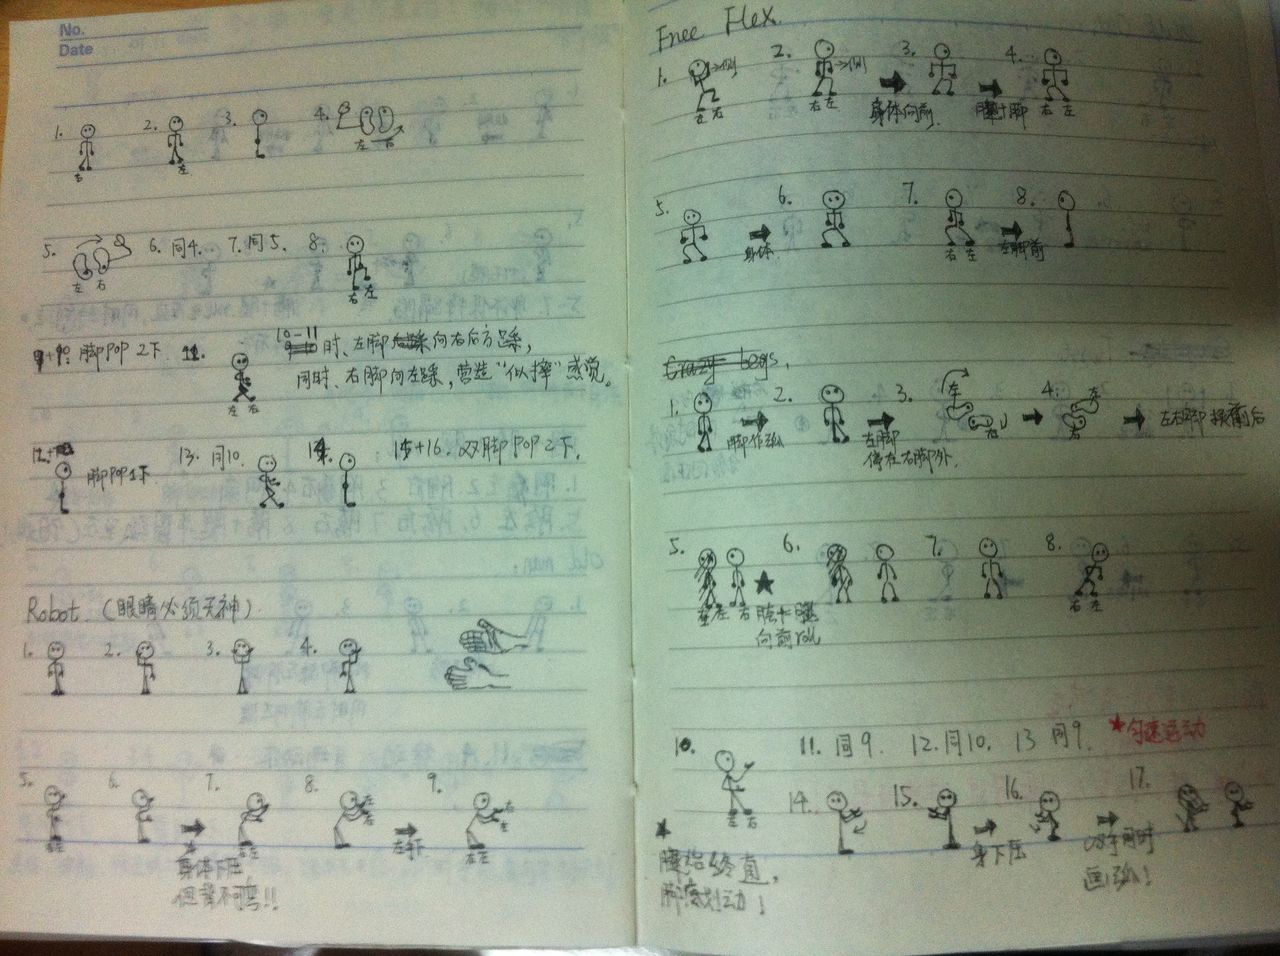 No.
Date
1. 2. 3. 4.
右 左 左 右
5. 6. 同4. 7. 同5. 8.
左 右 右 左
9+10. 脚POP 2下 11. 10-11 时、左脚向右后方踩,
同时、右脚向左踩,营造"似摔"感觉。
左 左
脚POP 1下. 13. 同10. 14. 15+16. 双脚POP 2下.
Robot. (眼睛必须无神)
1. 2. 3. 4.
5. 6. 7. 8. 9.
左 右
左 右
左右 左手下 右左
身体下压,
但背不可弯!!
Free Flex.
1. →侧 2. →侧 3. 4.
左 右 右 左 身体向前. 腰+脚 右 左
5. 6. 7. 8.
身体. 右 左 左脚前
Crazy legs.
1. 2. 3. 左 4. 左
右 右 左右脚换前后
脚作弧 左脚
停在右脚外.
5. 6. 7. 8.
左 左 右 胯+腿 右 左
向前roll
10. 11. 同9. 12. 同10. 13 同9. ★匀速运动
14. 15. 16. 17.
左 右
身下压 双手同时
画弧!
★
腰始终直,